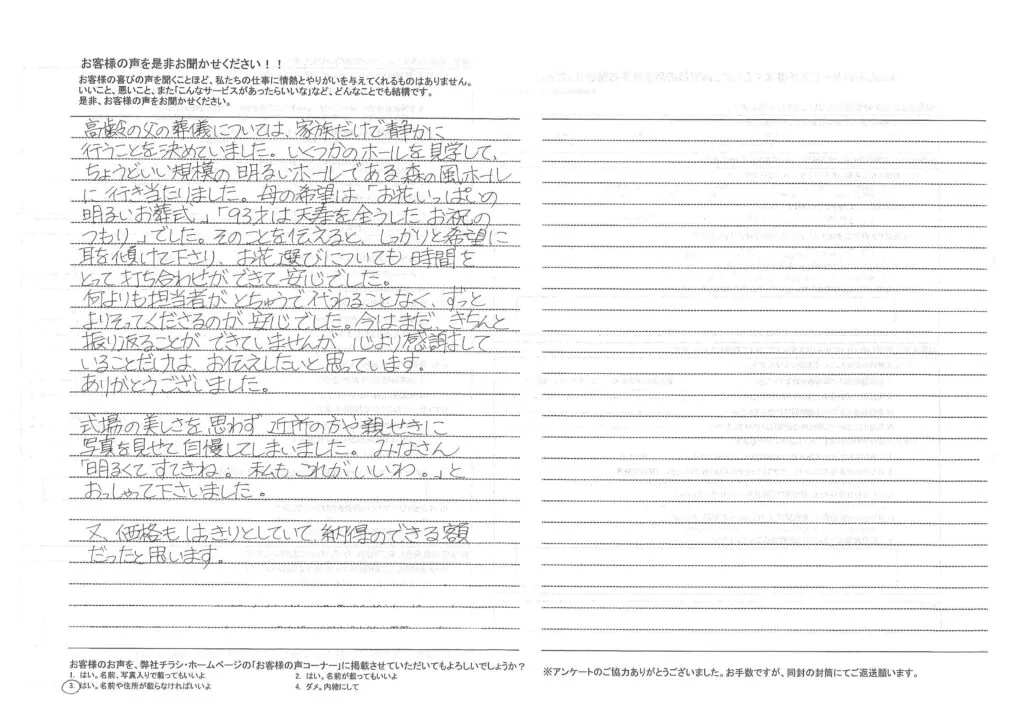 お客様の声を是非お聞かせください！！
お客様の喜びの声を聞くことほど、私たちの仕事に情熱とやりがいを与えてくれるものはありません。
いいこと、悪いこと、また「こんなサービスがあったらいいな」など、どんなことでも結構です。
是非、お客様の声をお聞かせください。
高齢の父の葬儀については、家族だけで静かに
行うことを決めていました。いくつかのホールを見学して、
ちょうどいい規模の明るいホールである森の風ホール
に行き当たりました。母の希望は「お花いっぱいの
明るいお葬式。」「93才は天寿を全うしたお祝の
つもり。」でした。そのことを伝えると、しっかりと希望に
耳を傾けて下さり、お花選びについても時間を
とって打ち合わせができて安心でした。
何よりも担当者がとちゅうで代わることなく、ずっと
よりそってくださるのが安心でした。今はまだ、きちんと
振り返ることができていませんが、心より感謝して
いることだけは、お伝えしたいと思っています。
ありがとうございました。
式場の美しさを思わず近所の方や親せきに
写真を見せて自慢してしまいました。みなさん
「明るくてすてきね。私もこれがいいわ。」と
おっしゃって下さいました。
又、価格もはっきりとしていて、納得のできる額
だったと思います。
お客様のお声を、弊社チラシ・ホームページの「お客様の声コーナー」に掲載させていただいてもよろしいでしょうか？
1. はい。名前、写真入りで載ってもいいよ 2. はい。名前が載ってもいいよ
3. はい。名前や住所が載らなければいいよ 4. ダメ。内緒にして
※アンケートのご協力ありがとうございました。お手数ですが、同封の封筒にてご返送願います。